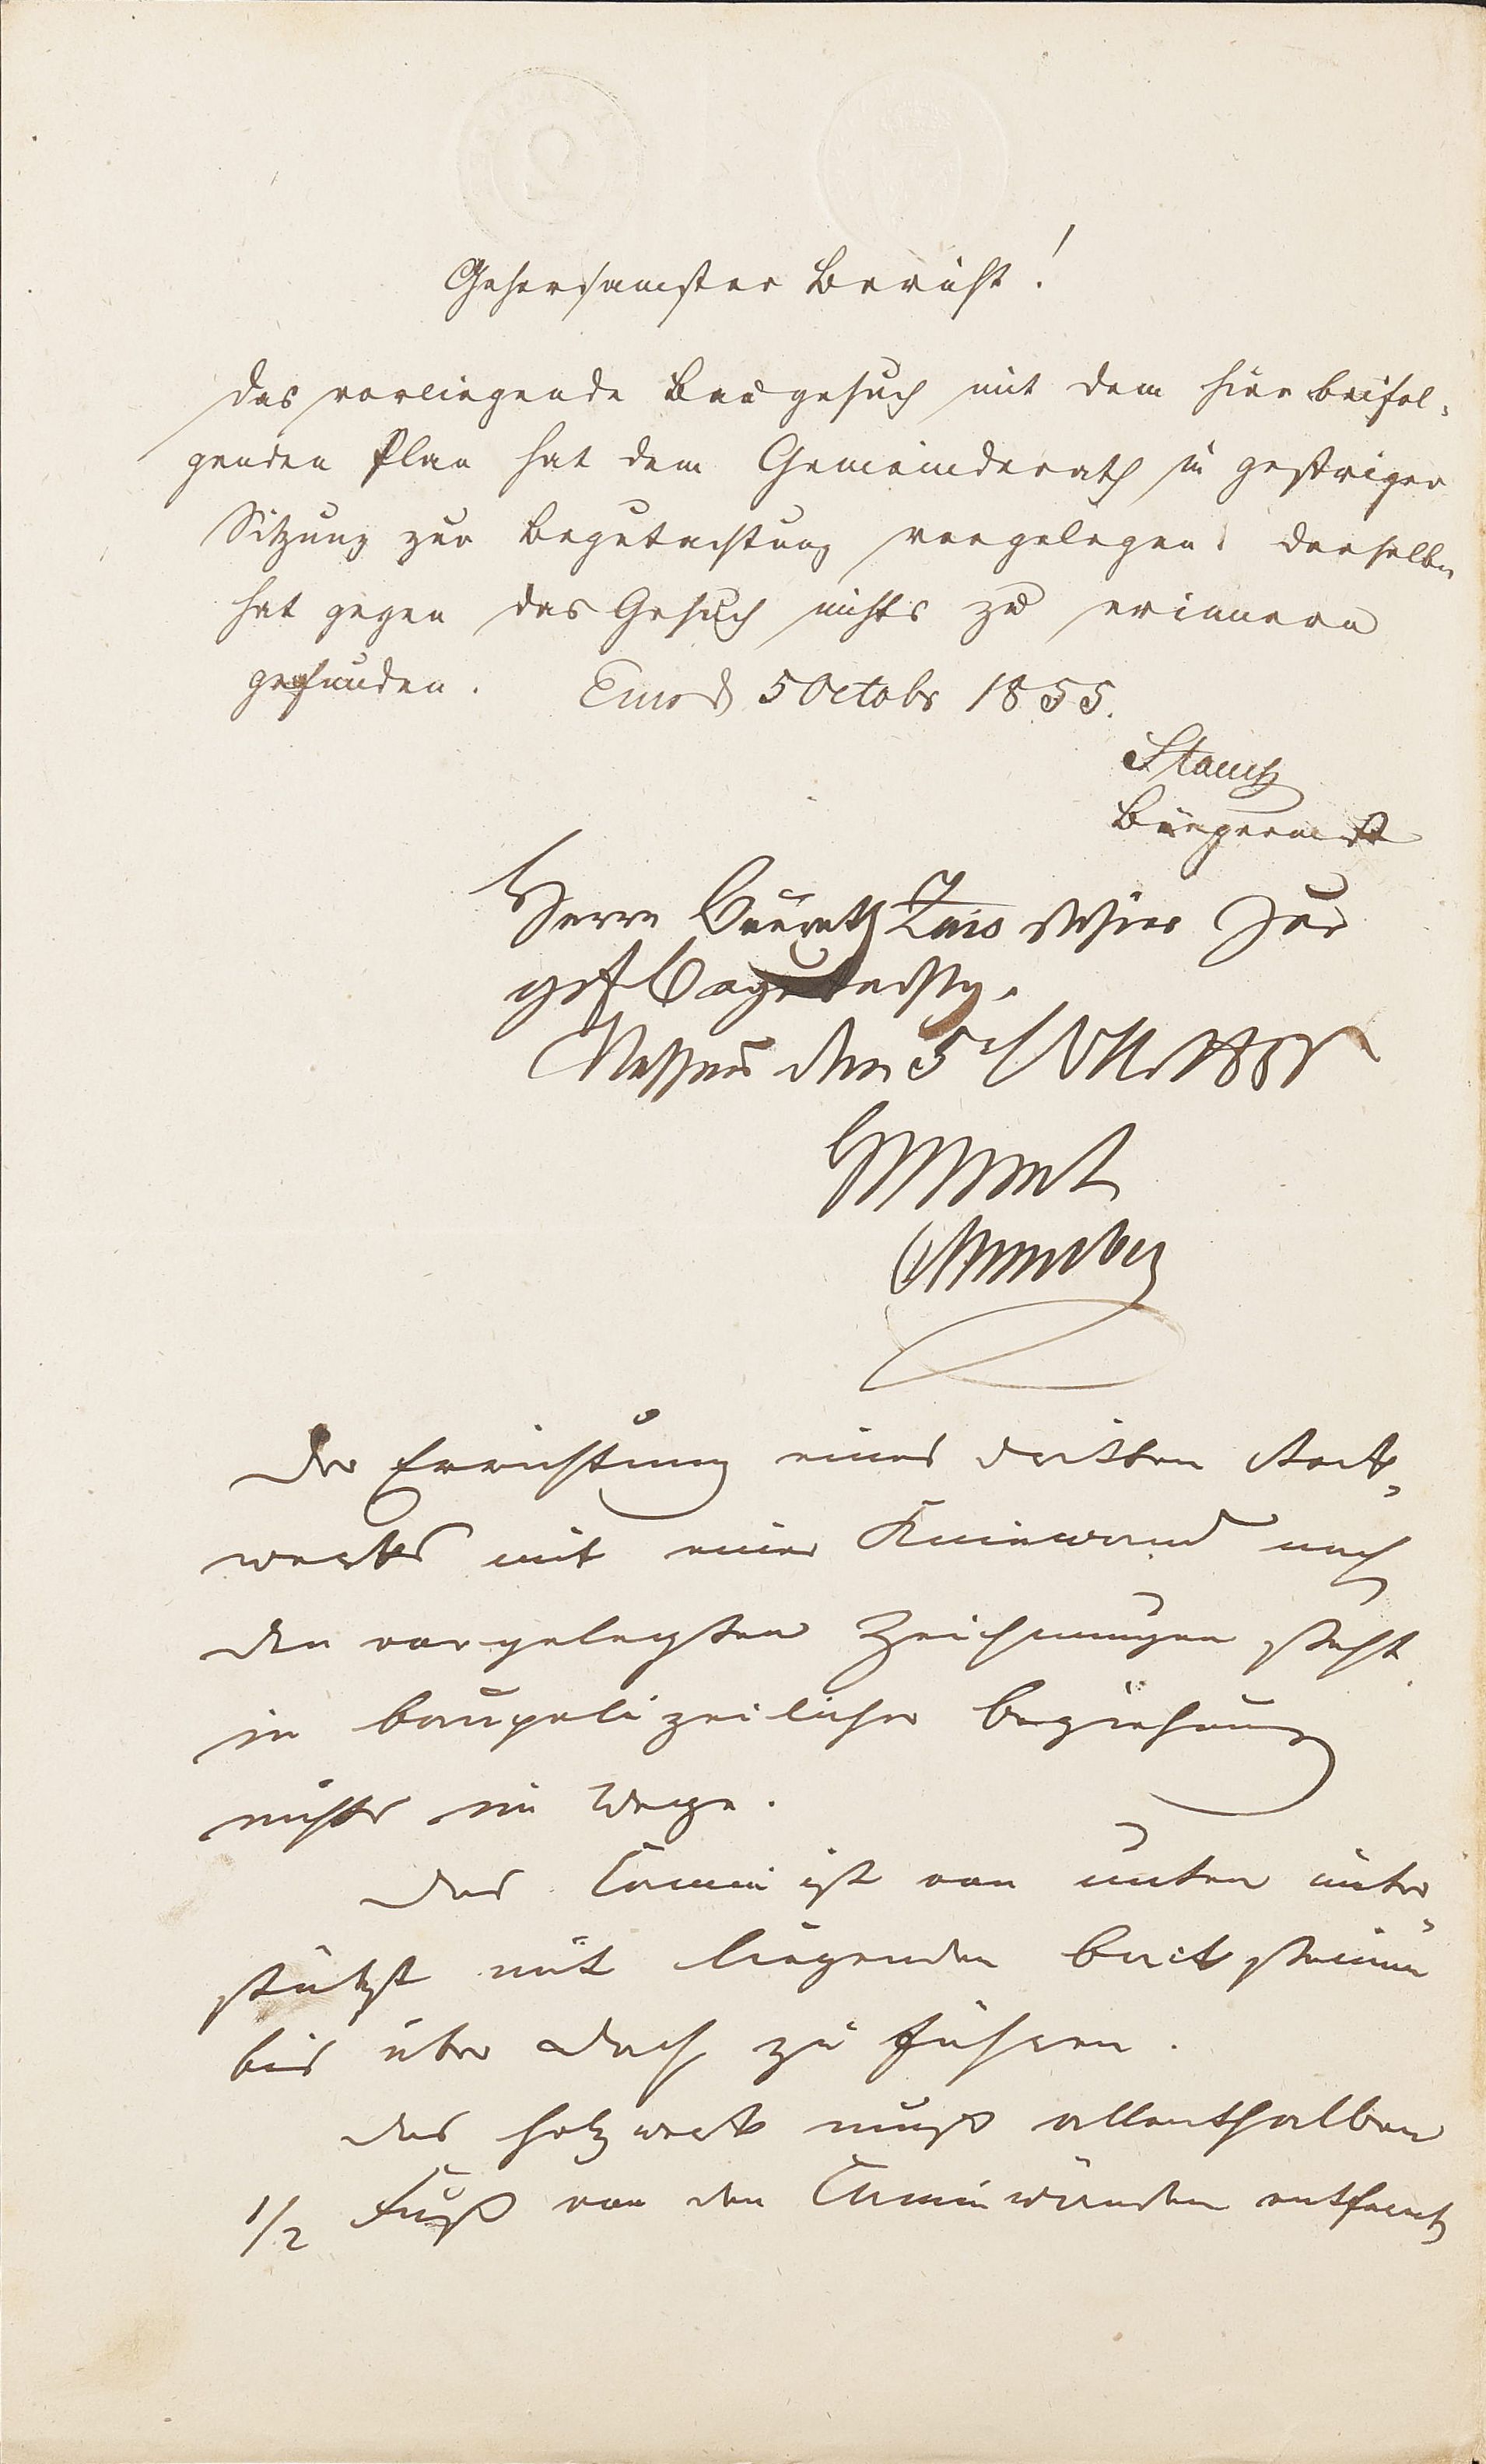 Gehorsamster Bericht!
Das vorliegende Baugesuch mit dem hier beifol-
genden Plan hat dem Gemeinderath in gestriger
Sitzung zur Begutachtung vorgelegen. derselbe
hat gegen das Gesuch nichts zu erinnern
gefunden. Ems d 5 Octobr 1855.
Stauch
Bürgermstr
Herrn Baurath Zais dahier zur
gef Begutachtg.
Nassau den 5 Oct 1855
Der Errichtung eines dritten Stock-
werks mit einer Kniewand nach
den vorgelegten Zeichnungen steht
in baupolizeilicher Beziehung
nichts im Wege.
Das Camin ist von unten unter-
stützt mit liegenden Backsteinen
bis über Dach zu führen.
Das Holzwerk muß allenthalben
1/2 Fuß von den Caminwänden entfernt